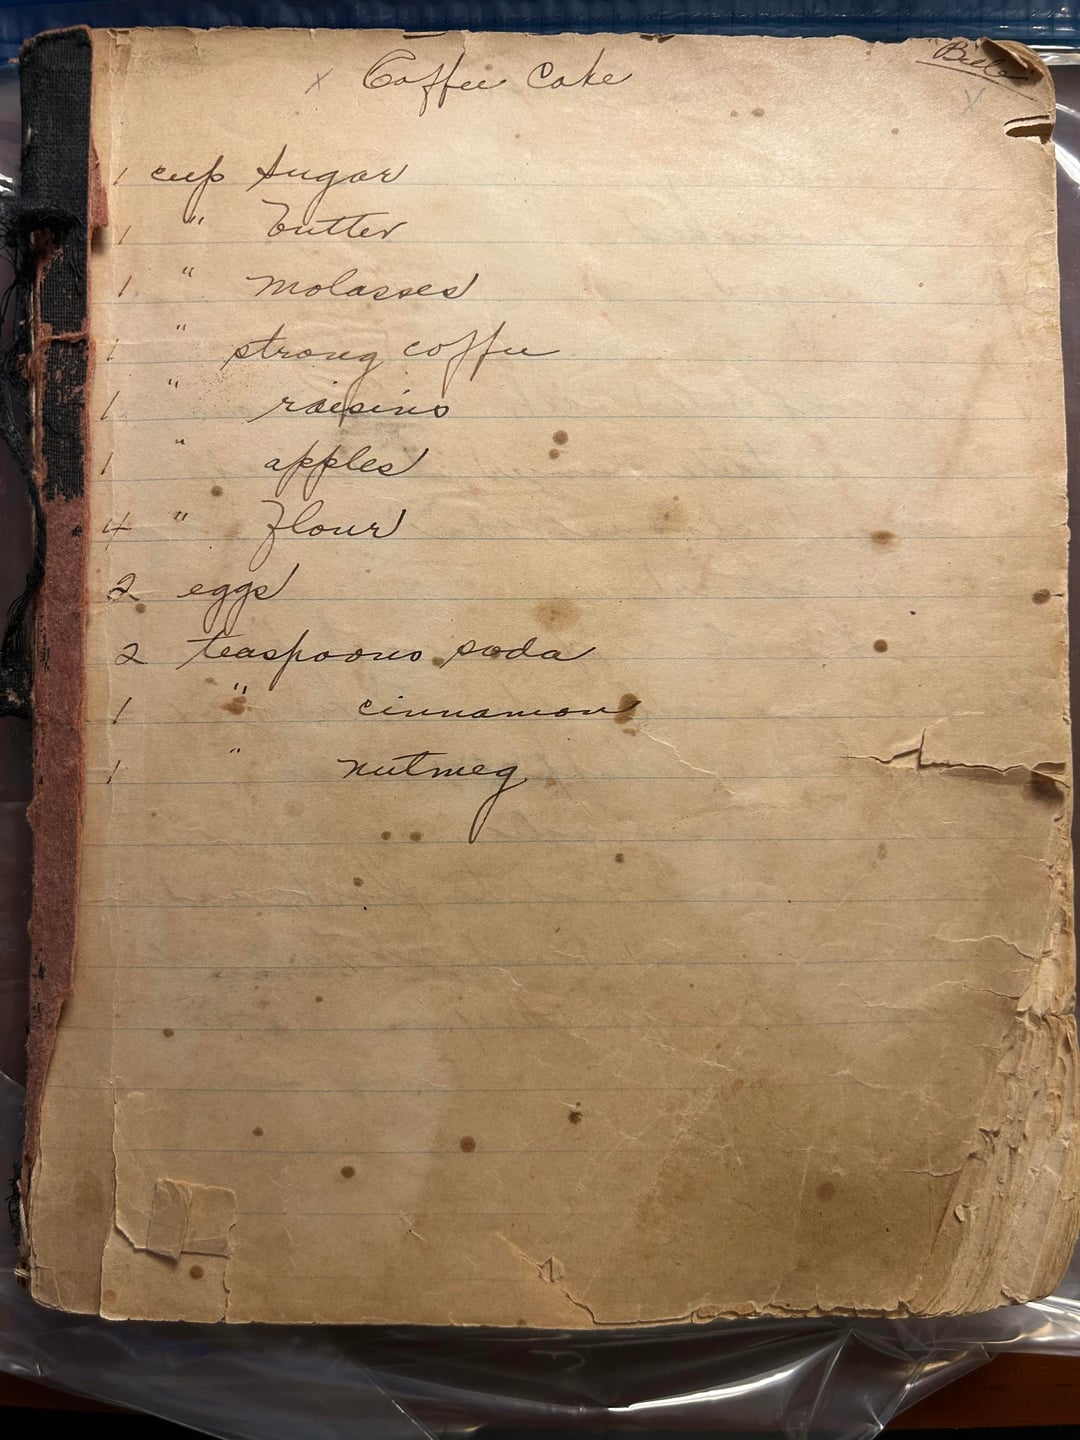 x Coffee Cake
1 cup sugar
1 " butter
1 " molasses
1 " strong coffee
1 " raisins
1 " apples
4 " flour
2 eggs
2 teaspoons soda
1 " cinnamon
1 " nutmeg